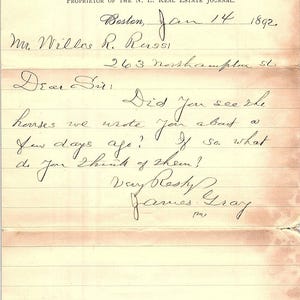 PROPRIETOR OF THE N. E. REAL ESTATE JOURNAL.
Boston, Jan 14 1892.
Mr. Willis R. Russ
263 Northampton st.
Dear Sir:
Did you see the
houses we wrote you about a
few days ago? If so what
do you think of them?
Very Respy
James Gray